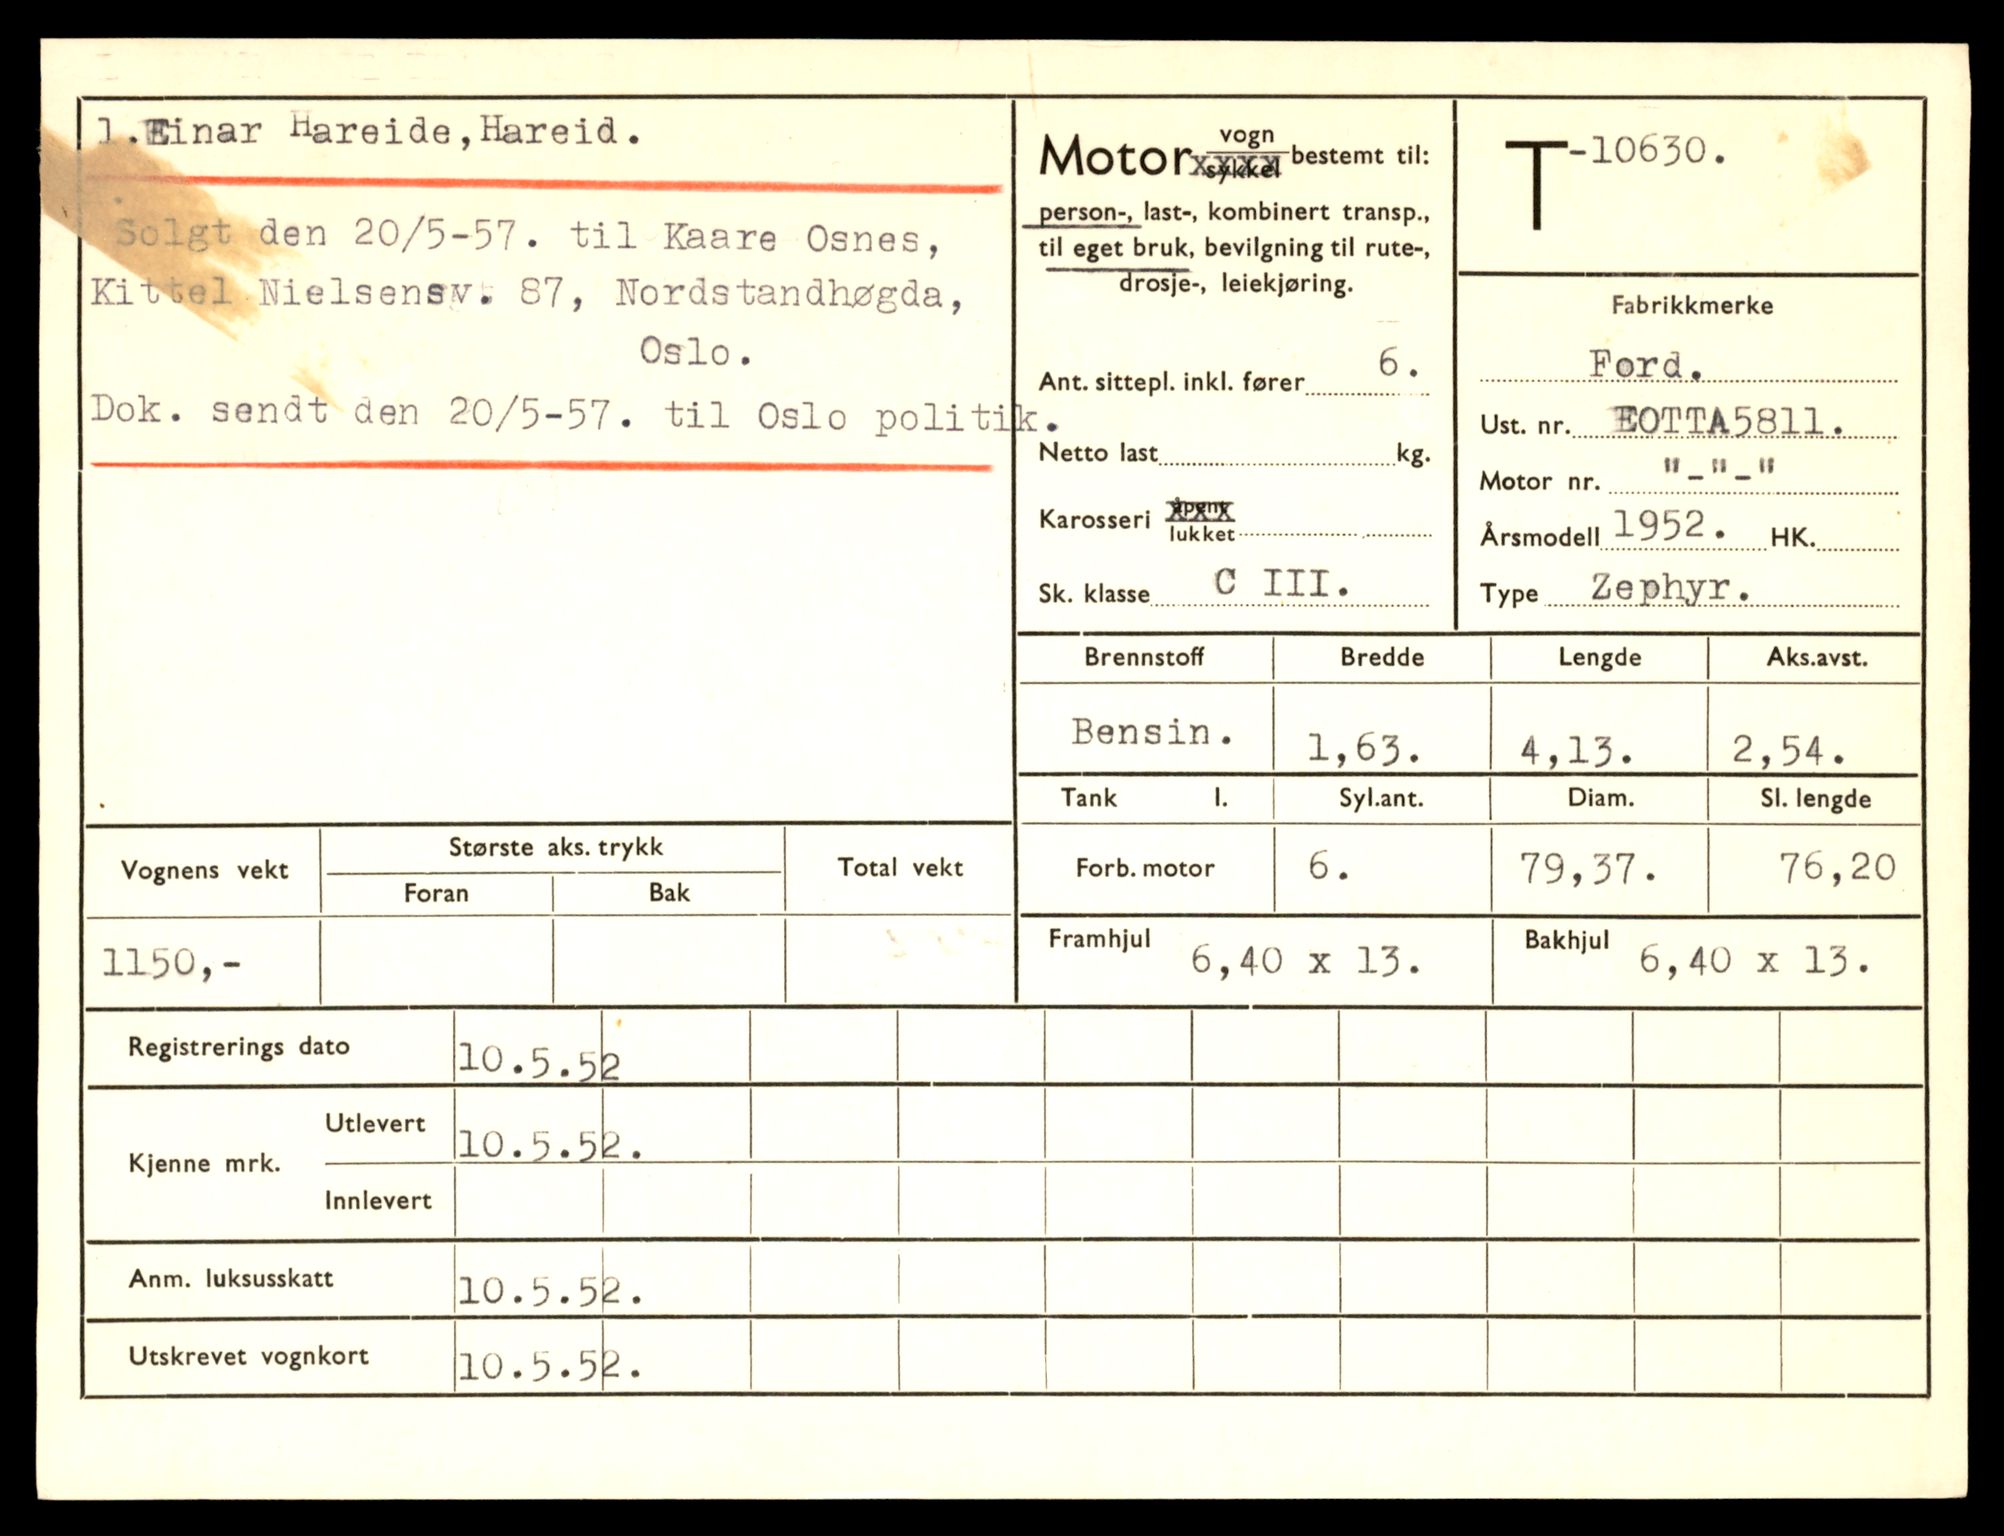 1.Einar Hareide,Hareid.
Solgt den 20/5-57. til Kaare Osnes,
Kittel Nielsensv. 87, Nordstandhøgda,
Oslo.
Dok. sendt den 20/5-57. til Oslo politik.
Motor vogn
sykkel bestemt til:
person-, last-, kombinert transp.,
til eget bruk, bevilgning til rute-,
drosje-, leiekjøring.
Ant. sittepl. inkl. fører 6.
Netto last kg.
Karosseri åpent
lukket
Sk. klasse C III.
T -10630.
Fabrikkmerke
Ford.
Ust. nr. EOTTA5811.
Motor nr. "-"-"
Årsmodell 1952. HK.
Type Zephyr.
Brennstoff Bredde Lengde Aks.avst.
Bensin. 1,63. 4,13. 2,54.
Tank l. Syl.ant. Diam. Sl. lengde
Forb. motor 6. 79,37. 76,20
Framhjul 6,40 x 13. Bakhjul 6,40 x 13.
Vognens vekt Største aks. trykk Total vekt
Foran Bak
1150,-
Registrerings dato 10.5.52
Kjenne mrk. Utlevert 10.5.52.
Innlevert
Anm. luksusskatt 10.5.52.
Utskrevet vognkort 10.5.52.